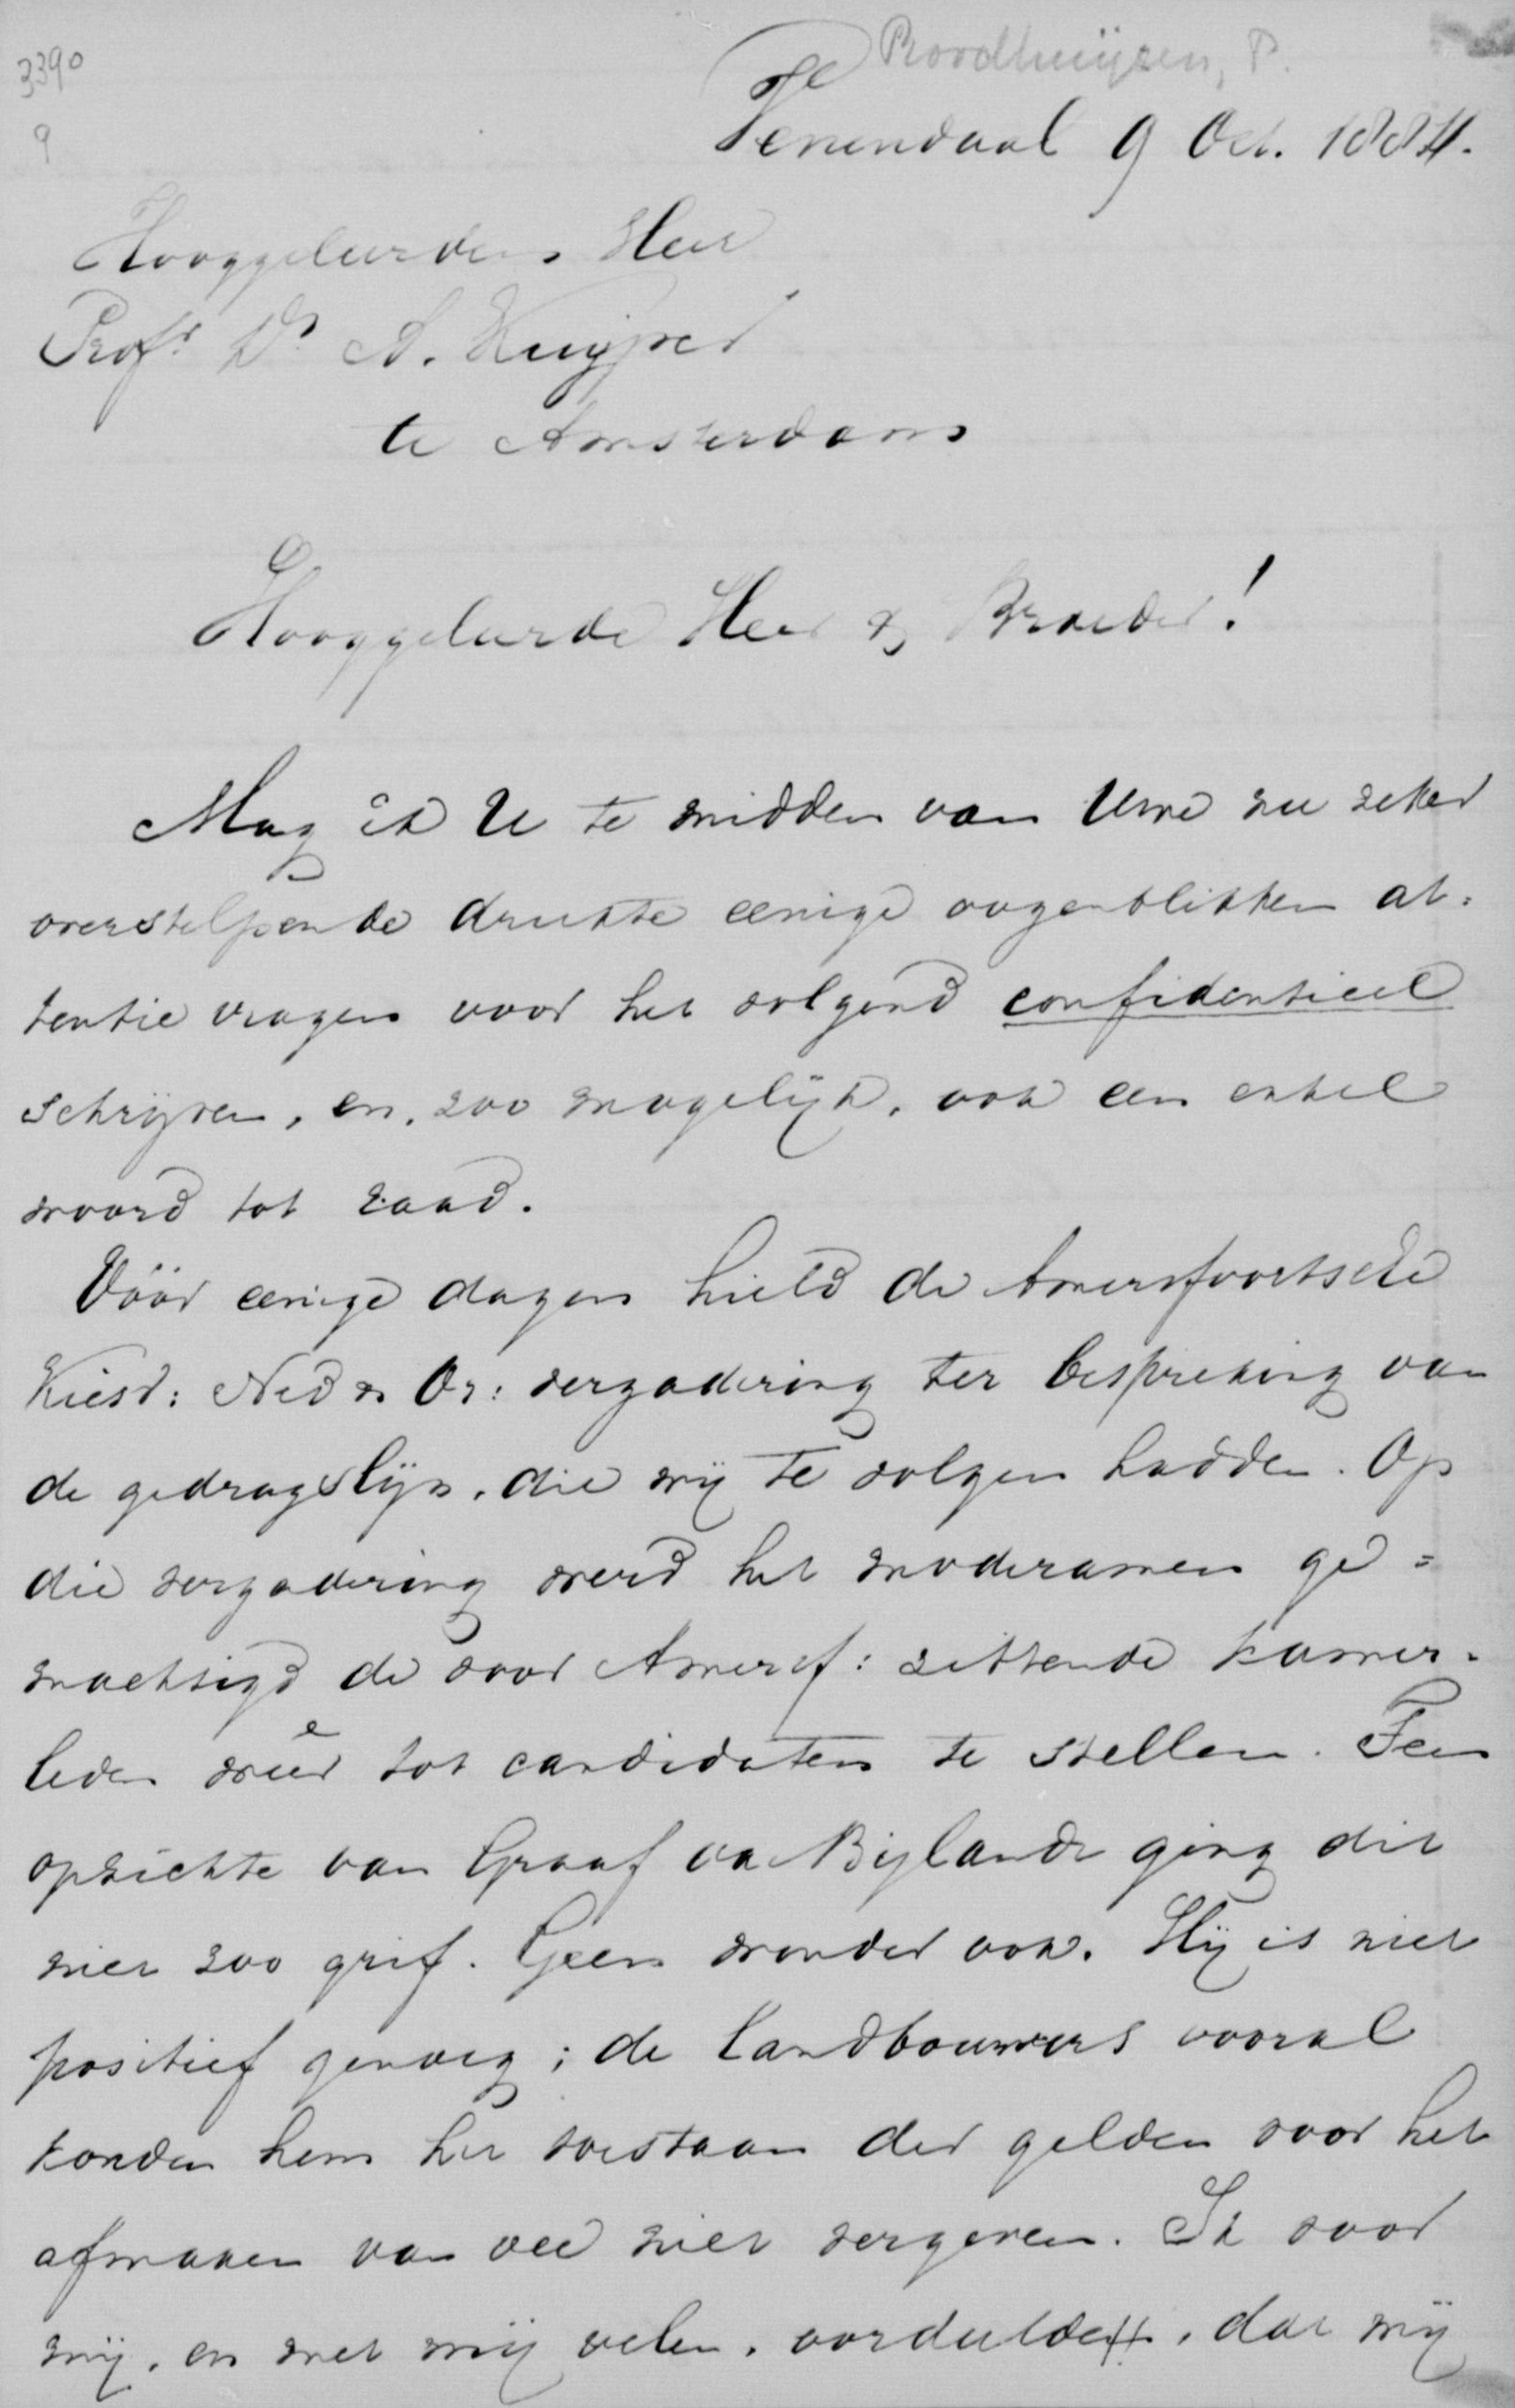 Roodhuijzen, P.
3390
9
Venendaal 9 Oct. 1884.
Hooggeleerden Heer
Profr Dr A. Kuijper
te Amsterdam
Hooggeleerde Heer & Broeder!
Mag ik U te midden van Uwe nu zeker
overstelpende drukte eenige oogenblikken at=
tentie vragen voor het volgend confidentieel
schrijven, en, zoo mogelijk, ook een enkel
woord tot raad.
Vóór eenige dagen hield de Amersfoortsche
Kiesv: Ned & Or: vergadering ter bespreking van
de gedragslijn, die wij te volgen hadden. Op
die vergadering werd het moderamen ge=
machtigd de voor Amersf: zittende kamer=
leden weêr tot candidaten te stellen. Ten
opzichte van Graaf van Bijlandt ging dit
niet zoo grif. Geen wonder ook. Hij is niet
positief genoeg; de landbouwers vooral
konden hem het toestaan der gelden voor het
afmaken van vee niet vergeven. Ik voor
mij, en met mij velen, oordeelde, dat wij